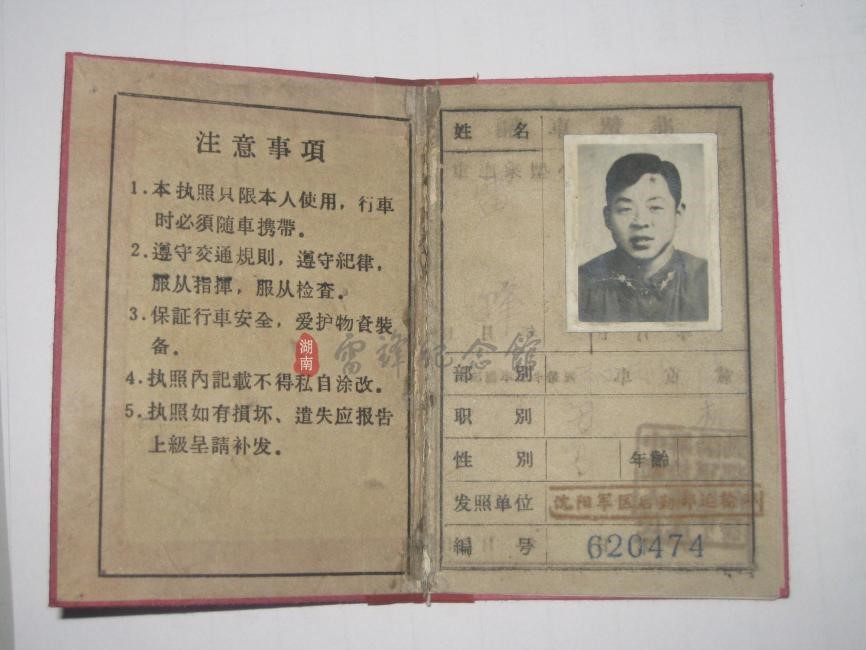 注意事項
1. 本执照只限本人使用，行車
时必須随車携帶。
2. 遵守交通規則，遵守紀律，
服从指揮，服从检查。
3. 保証行車安全，爱护物資装
备。
4. 执照內記載不得私自涂改。
5. 执照如有損坏、遺失应报告
上級呈請补发。
湖南
雷鋒紀念館
姓 名
部 別
职 別
性 別
年齡
发照单位
沈阳军区后勤部运输部
编 号
620474